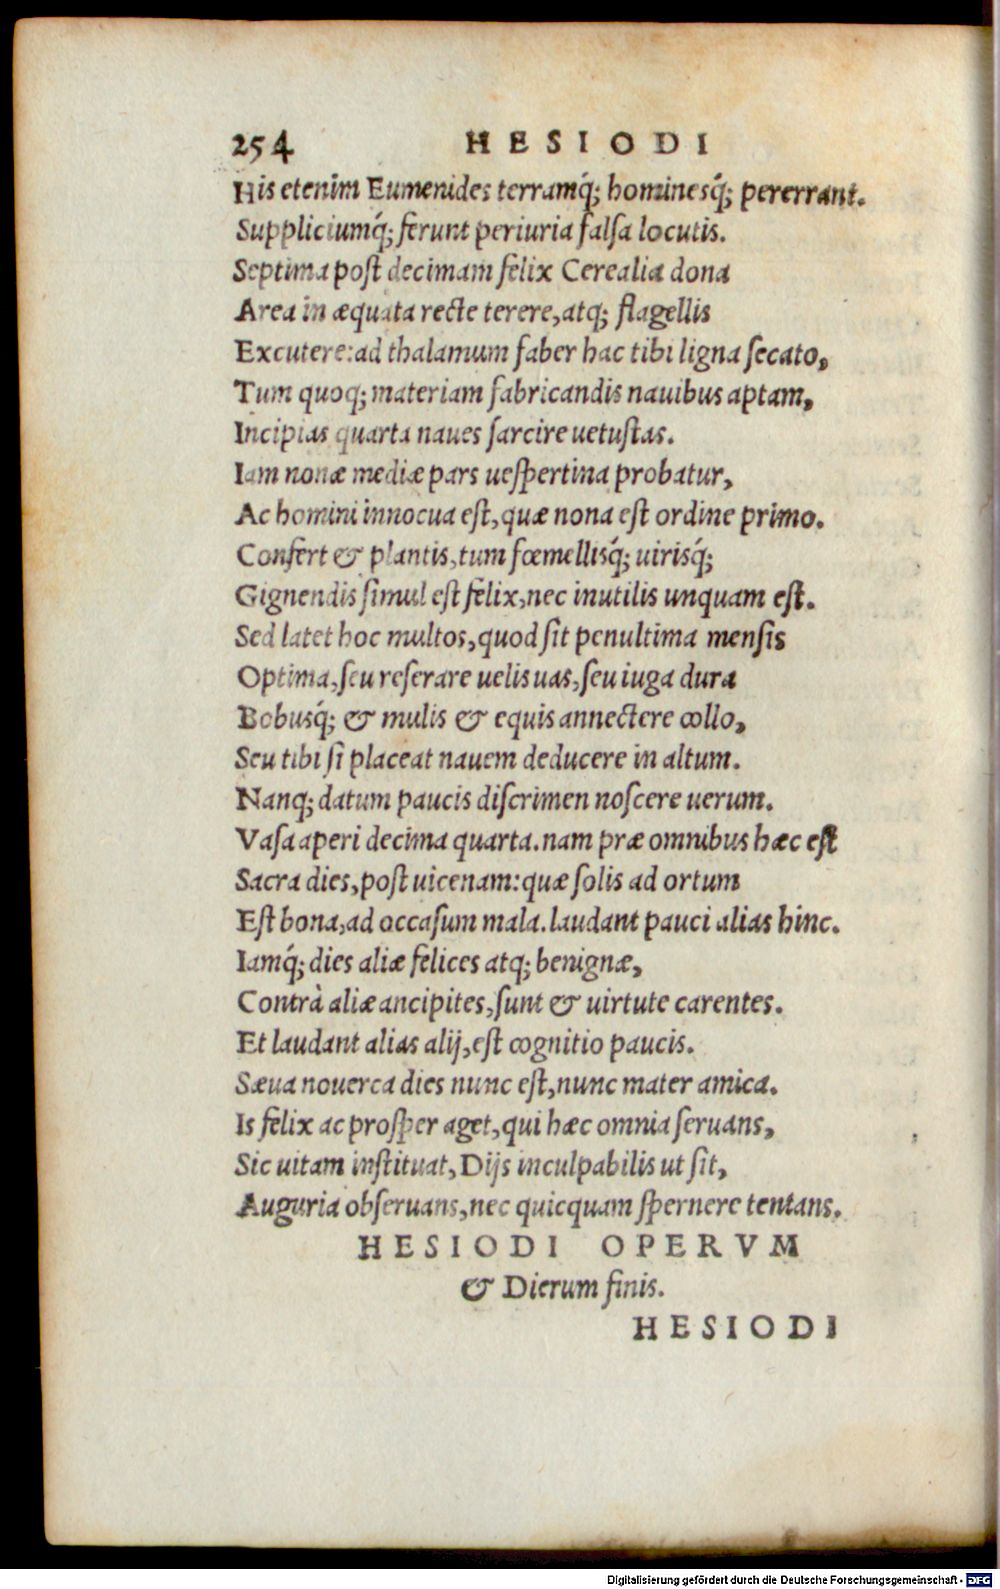 254 HESIODI
His etenim Eumenides terramq́; hominesq́; pererrant.
Suppliciumq́; ferunt periuria falsa locutis.
Septima post decimam felix Cerealia dona
Area in æquata recte terere, atq; flagellis
Excutere: ad thalamum faber hac tibi ligna secato,
Tum quoq; materiam fabricandis nauibus aptam,
Incipias quarta naues sarcire uetustas.
Iam nonæ mediæ pars uespertina probatur,
Ac homini innocua est, quæ nona est ordine primo.
Confert & plantis, tum fœmellisq́; uirisq́;
Gignendis simul est felix, nec inutilis unquam est.
Sed latet hoc multos, quod sit penultima mensis
Optima, seu reserare uelis uas, seu iuga dura
Bobusq́; & mulis & equis annectere collo,
Seu tibi si placeat nauem deducere in altum.
Nanq; datum paucis discrimen noscere uerum.
Vasa aperi decima quarta. nam præ omnibus hæc est
Sacra dies, post uicenam: quæ solis ad ortum
Est bona, ad occasum mala. laudant pauci alias hinc.
Iamq́; dies aliæ felices atq; benignæ,
Contrà aliæ ancipites, sunt & uirtute carentes.
Et laudant alias alij, est cognitio paucis.
Sæua nouerca dies nunc est, nunc mater amica.
Is felix ac prosper aget, qui hæc omnia seruans,
Sic uitam instituat, Dijs inculpabilis ut sit,
Auguria obseruans, nec quicquam spernere tentans.
HESIODI OPERVM
& Dierum finis.
HESIODI
Digitalisierung gefördert durch die Deutsche Forschungsgemeinschaft - DFG